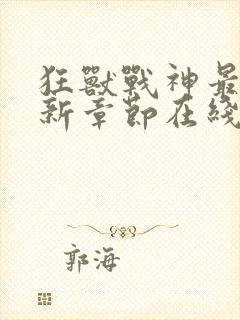 狂獸戰神最
新章節在綫
郭海